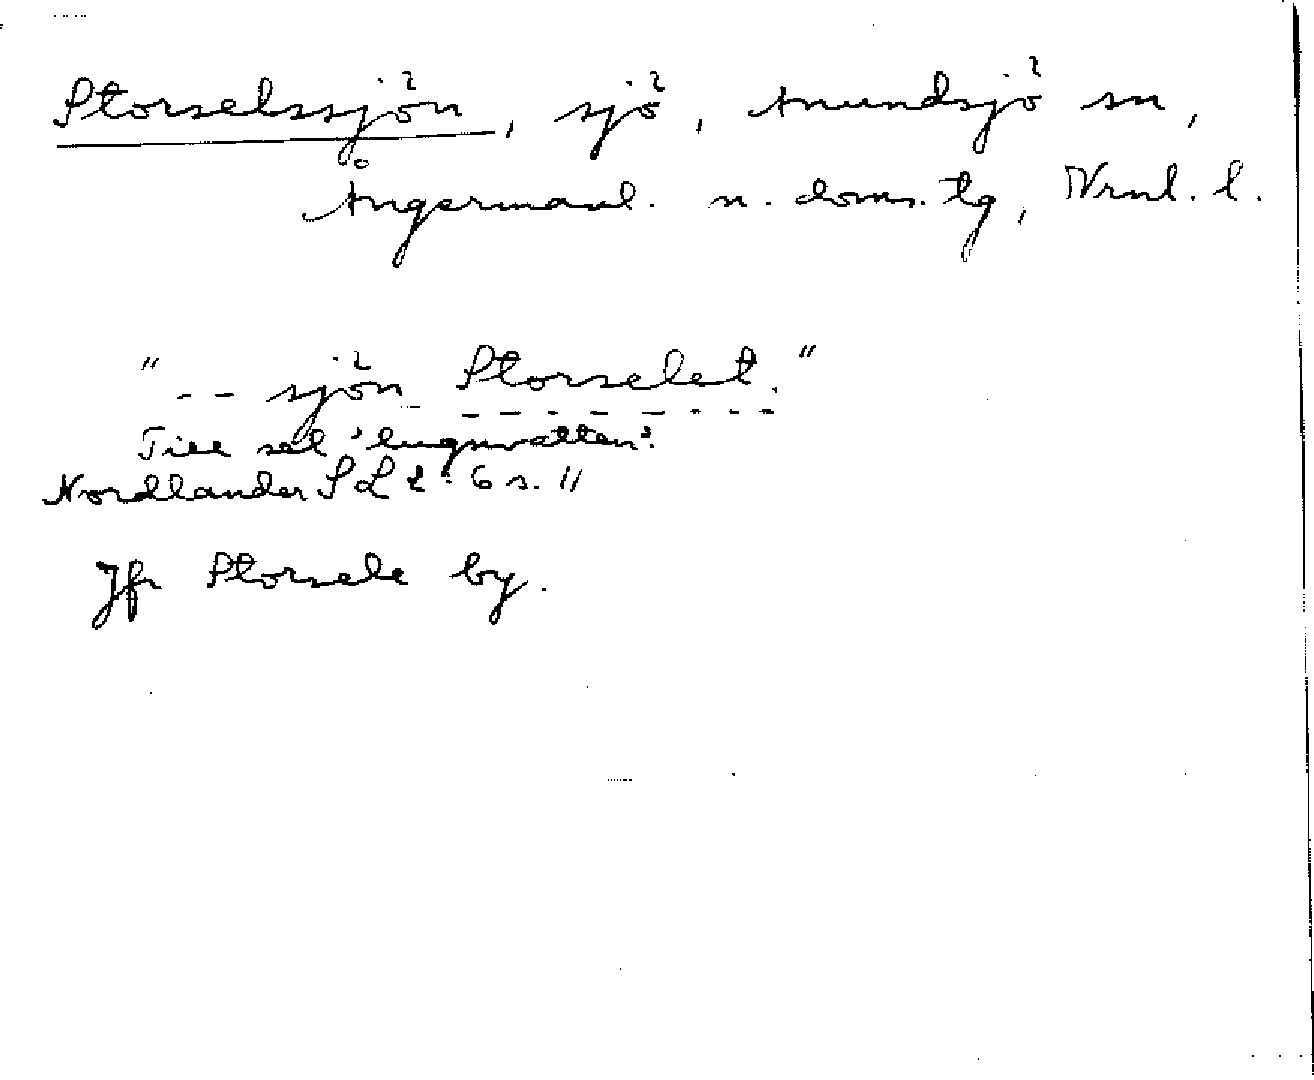 Storselssjön, sjö, Anundsjö sn,
Ångermanl. n. doms. tg, Vrnl. l.
"-- sjön Storselet."
Till sel 'lugnvatten'.
Nordlander SL 2: 6 s. 11
Jfr Storsele by.